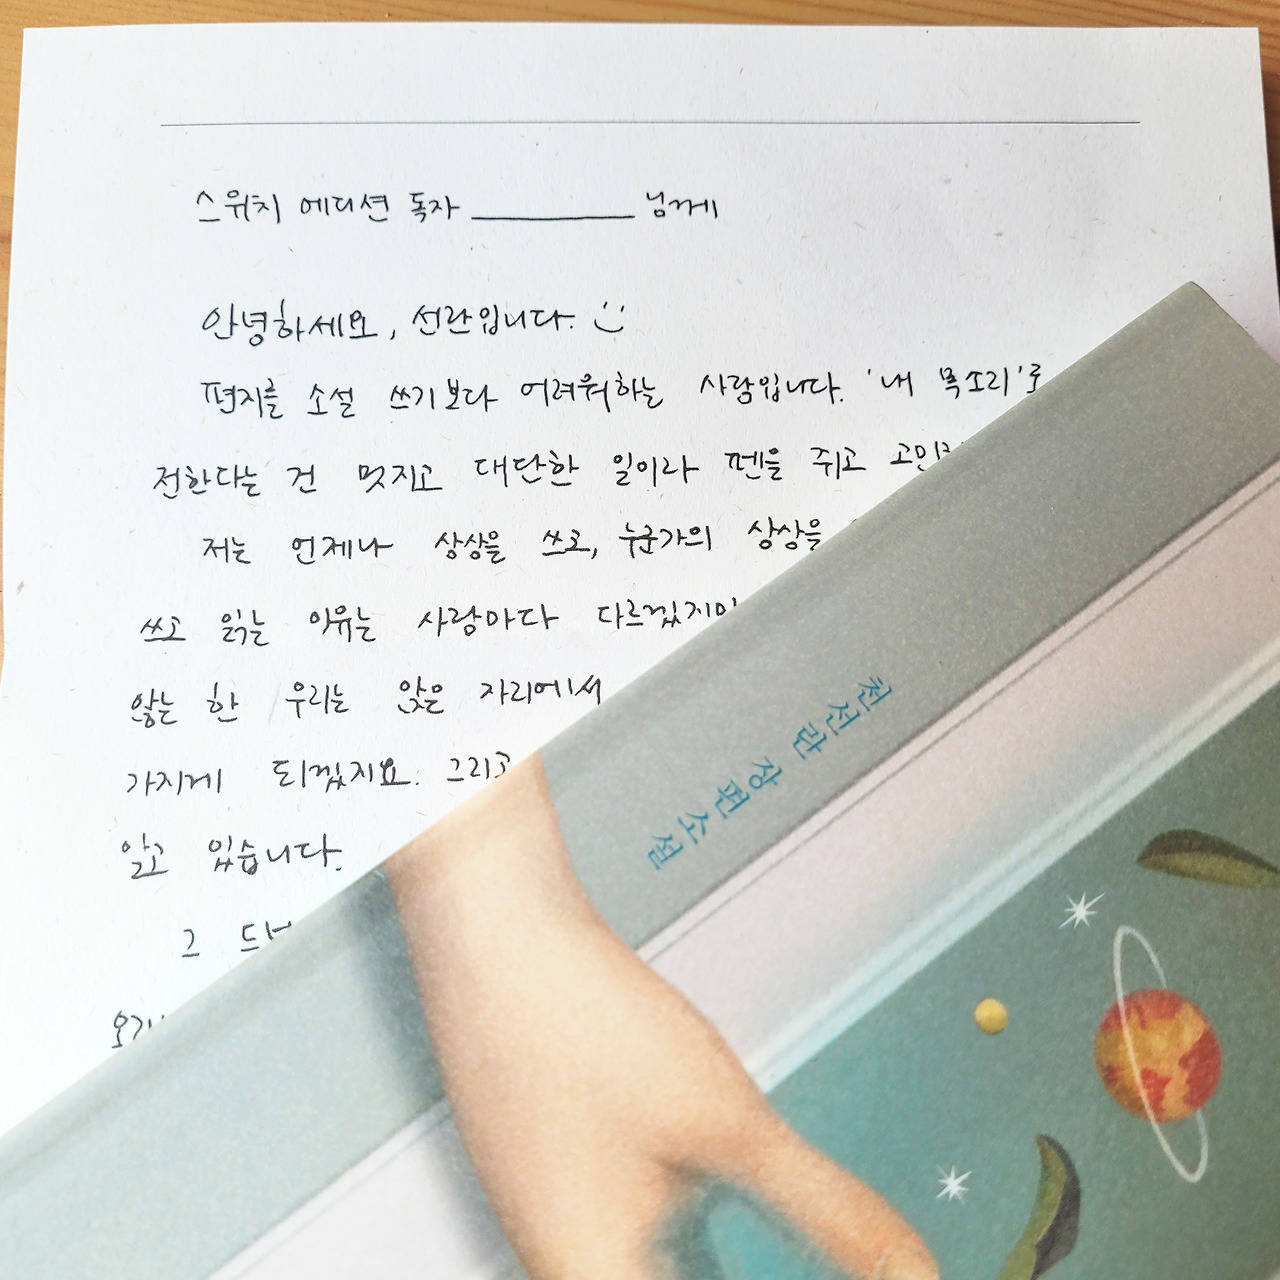 스위치 에디션 독자 ________ 님께
안녕하세요, 선란입니다. :)
편지를 소설 쓰기보다 어려워하는 사람입니다. '내 목소리'로
전한다는 건 멋지고 대단한 일이라 펜을 쥐고
저는 언제나 상상을 쓰고, 누군가의 상상을
쓰고 읽는 이유는 사람마다 다르겠지만
않는 한 우리는 앉은 자리에서
가지게 되겠지요. 그리고
알고 있습니다.
그
천선란 장편소설